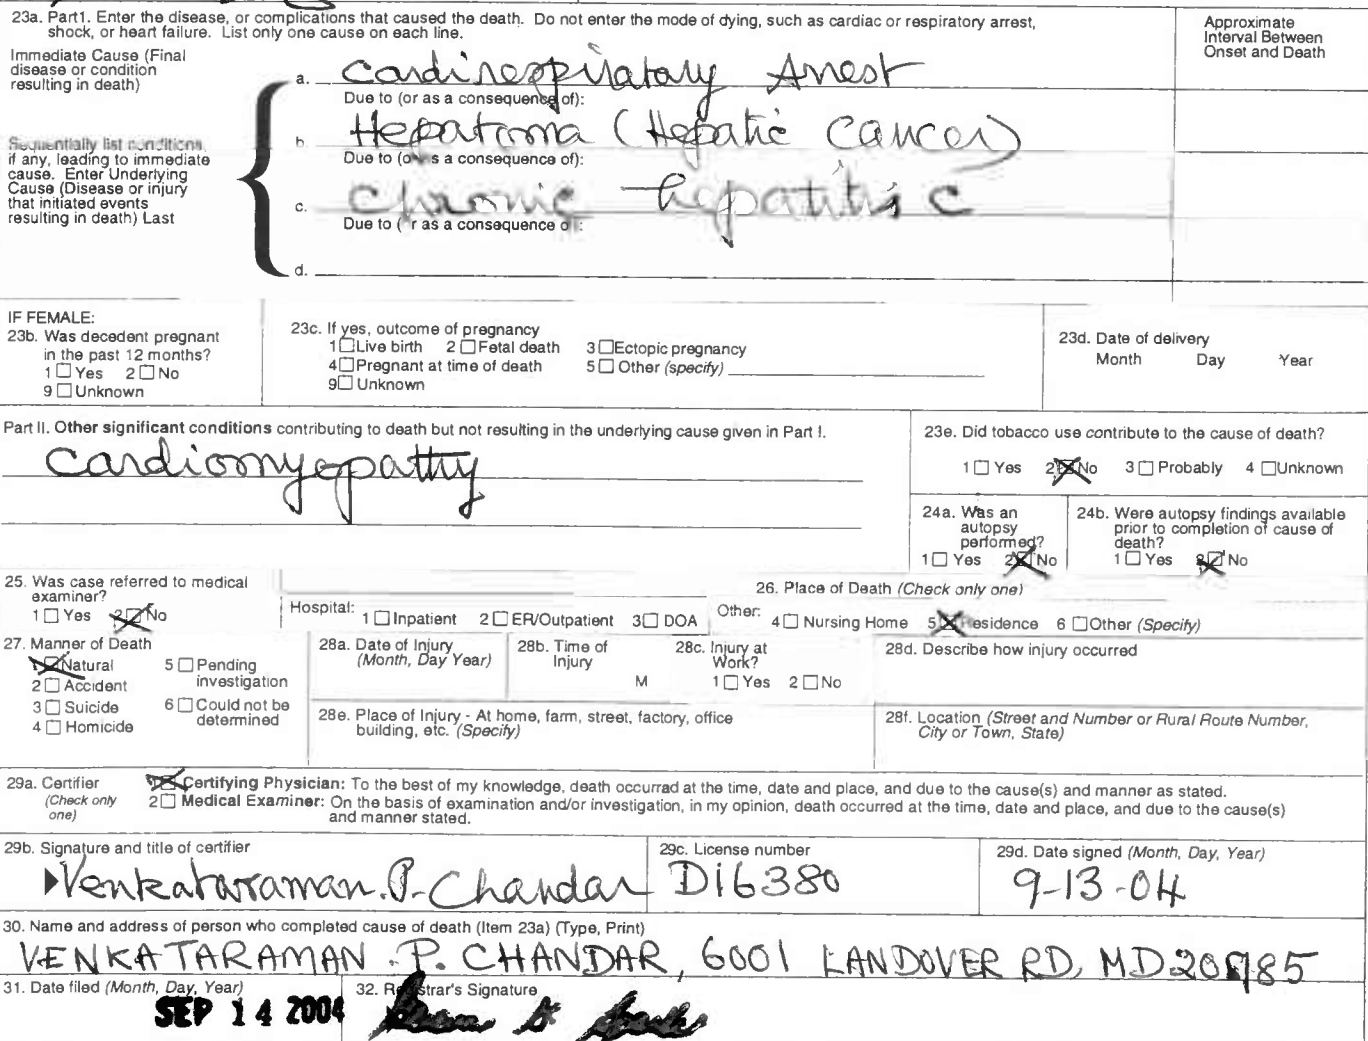 23a. Part1. Enter the disease, or complications that caused the death. Do not enter the mode of dying, such as cardiac or respiratory arrest,
shock, or heart failure. List only one cause on each line.
Approximate
Interval Between
Onset and Death
Immediate Cause (Final
disease or condition
resulting in death)
a. Cardirespiratary Arrest
Due to (or as a consequence of):
b. Hepatoma (Hepatic Cancer)
Due to (or as a consequence of):
Sequentially list conditions,
if any, leading to immediate
cause. Enter Underlying
Cause (Disease or injury
that initiated events
resulting in death) Last
c. Chronic hepatitis C
Due to (or as a consequence of):
d.
IF FEMALE:
23b. Was decedent pregnant
in the past 12 months?
1 Yes 2 No
9 Unknown
23c. If yes, outcome of pregnancy
1 Live birth 2 Fetal death 3 Ectopic pregnancy
4 Pregnant at time of death 5 Other (specify)
9 Unknown
23d. Date of delivery
Month Day Year
Part II. Other significant conditions contributing to death but not resulting in the underlying cause given in Part I.
Cardiomyopathy
23e. Did tobacco use contribute to the cause of death?
1 Yes 2 No 3 Probably 4 Unknown
24a. Was an
autopsy
performed?
1 Yes 2 No
24b. Were autopsy findings available
prior to completion of cause of
death?
1 Yes 2 No
25. Was case referred to medical
examiner?
1 Yes 2 No
26. Place of Death (Check only one)
Hospital: 1 Inpatient 2 ER/Outpatient 3 DOA Other: 4 Nursing Home 5 Residence 6 Other (Specify)
27. Manner of Death
1 Natural 5 Pending
investigation
2 Accident
3 Suicide 6 Could not be
determined
4 Homicide
28a. Date of Injury
(Month, Day Year)
28b. Time of
Injury
M
28c. Injury at
Work?
1 Yes 2 No
28d. Describe how injury occurred
28e. Place of Injury - At home, farm, street, factory, office
building, etc. (Specify)
28f. Location (Street and Number or Rural Route Number,
City or Town, State)
29a. Certifier
(Check only
one)
1 Certifying Physician: To the best of my knowledge, death occurrad at the time, date and place, and due to the cause(s) and manner as stated.
2 Medical Examiner: On the basis of examination and/or investigation, in my opinion, death occurred at the time, date and place, and due to the cause(s)
and manner stated.
29b. Signature and title of certifier
Venkataraman. P. Chandar
29c. License number
D16380
29d. Date signed (Month, Day, Year)
9-13-04
30. Name and address of person who completed cause of death (Item 23a) (Type, Print)
VENKATARAMAN . P. CHANDAR, 6001 LANDOVER RD, MD 20785
31. Date filed (Month, Day, Year)
SEP 14 2004
32. Registrar's Signature